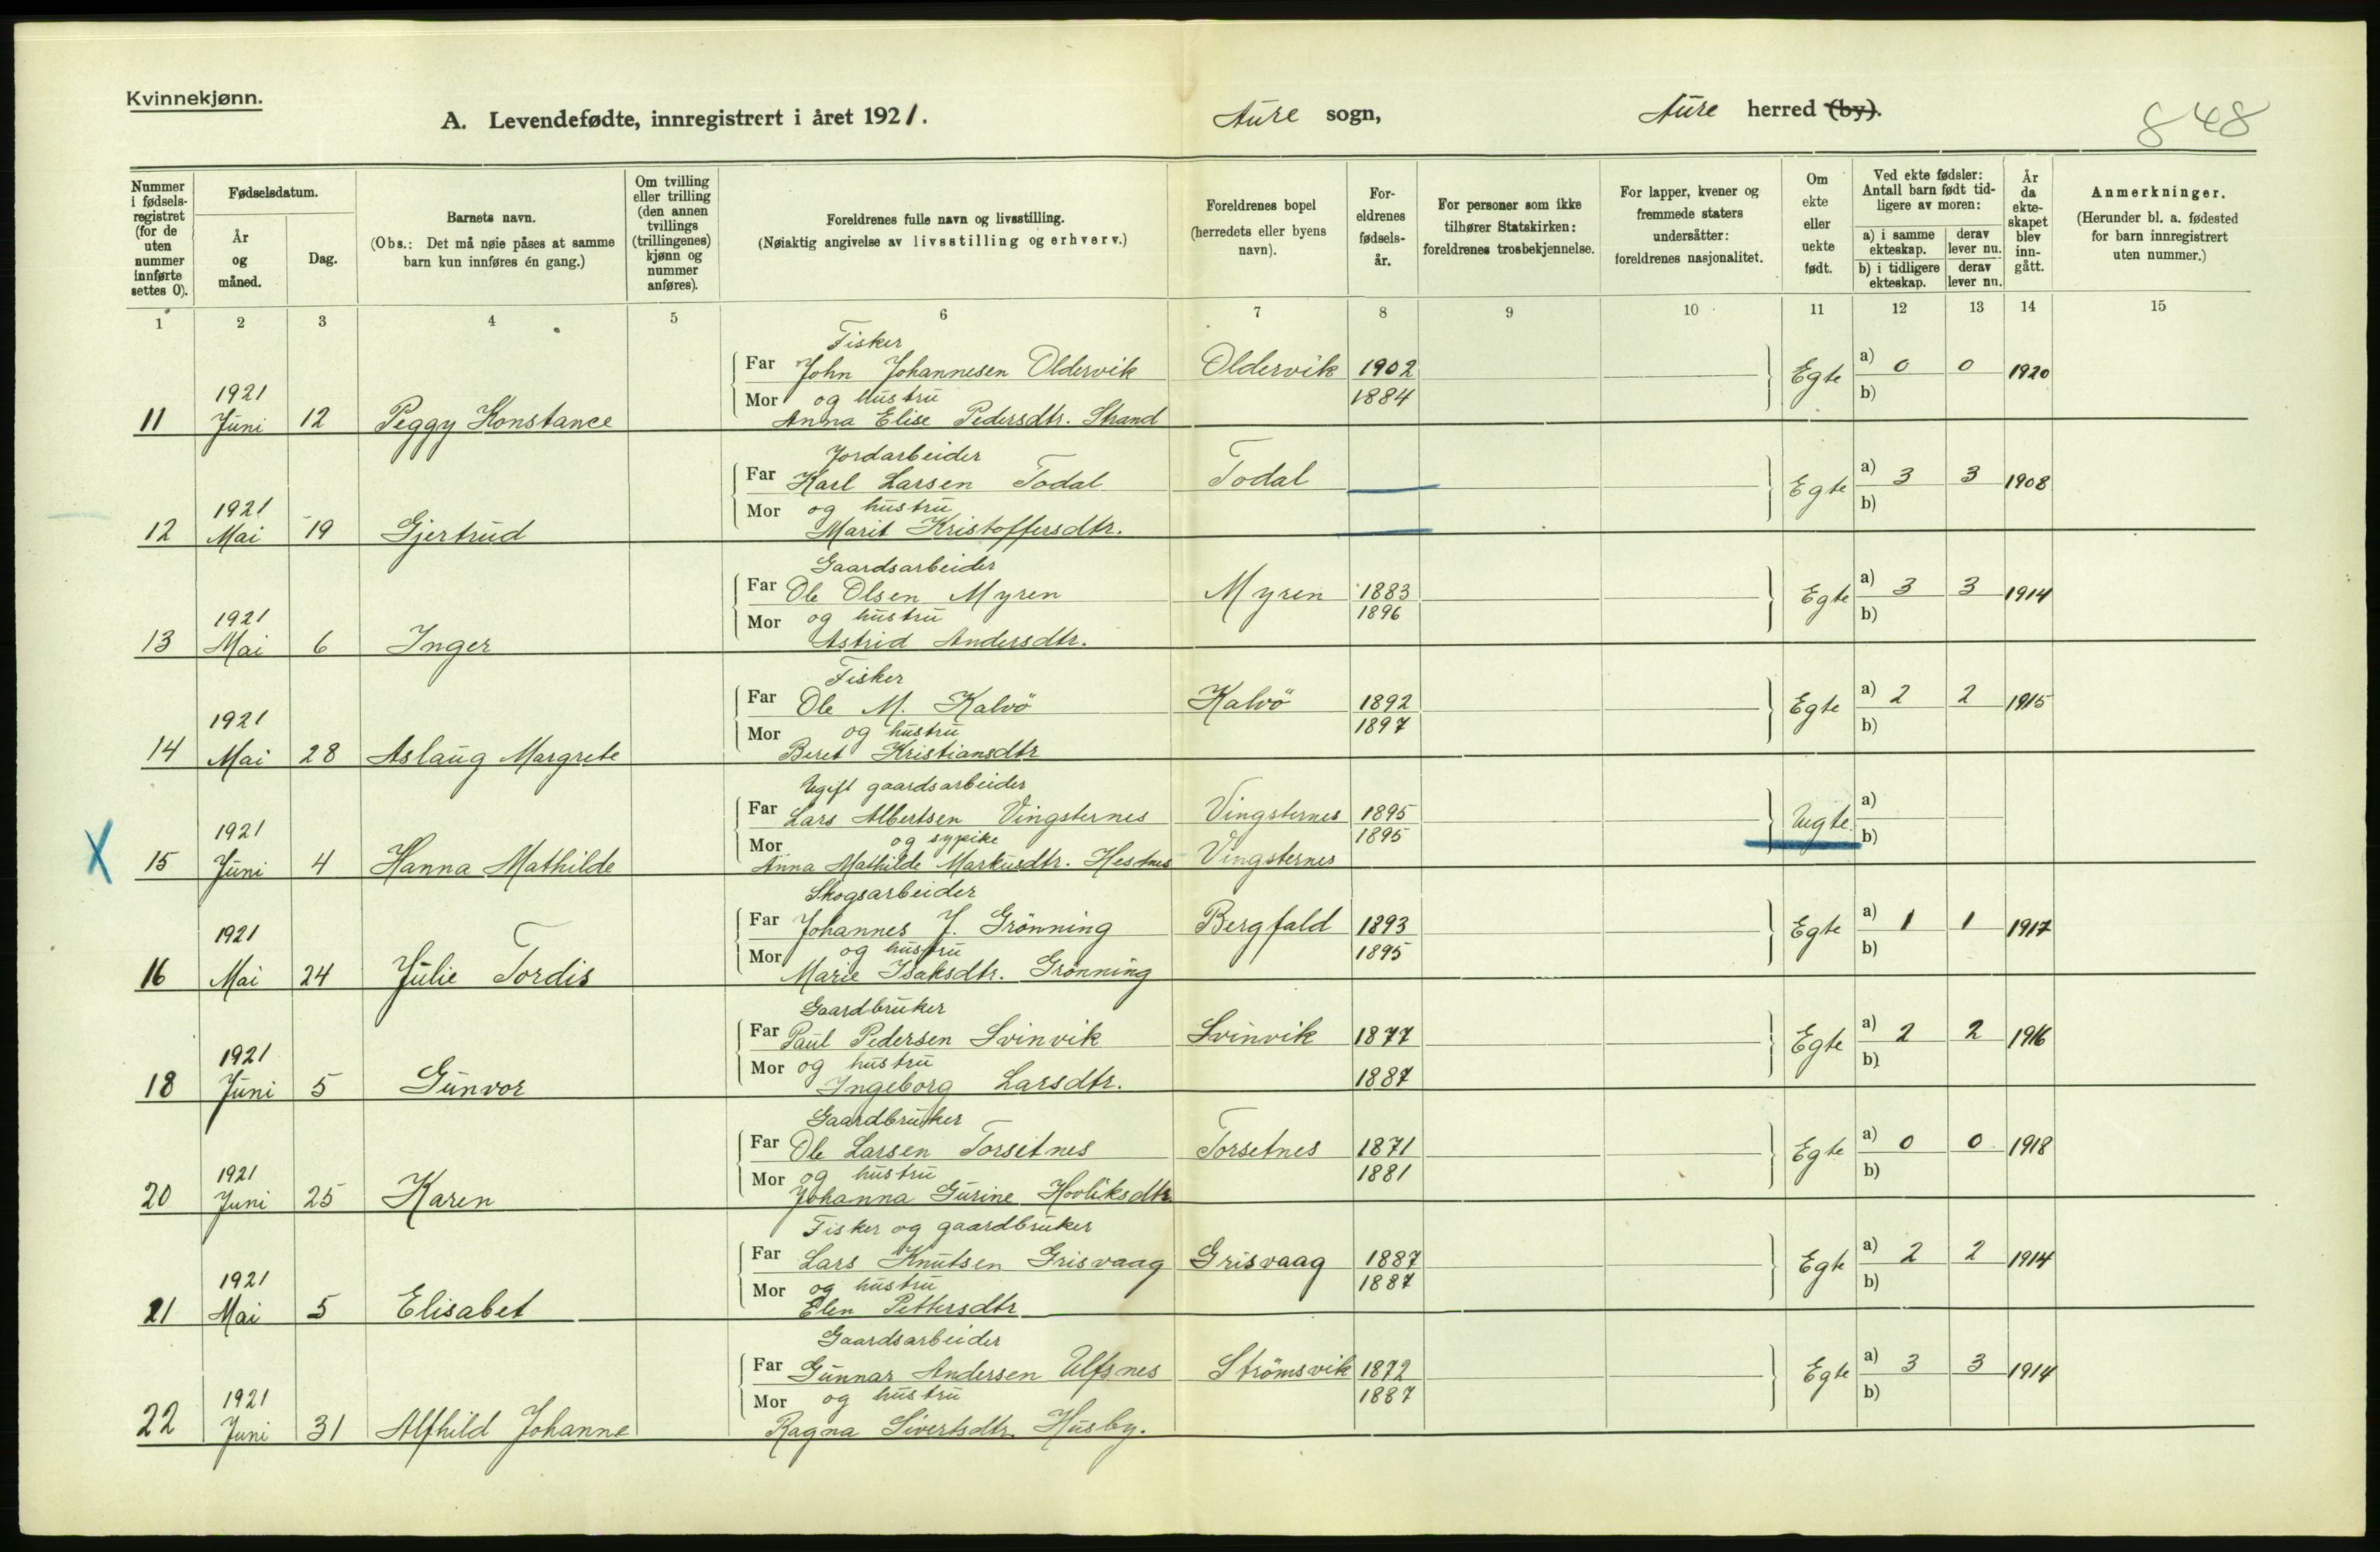 Kvinnekjønn.
A. Levendefødte, innregistrert i året 1921.
Aure sogn,
Aure herred (by).
848
Nummer i fødsels-registret (for de uten nummer innførte settes 0).
Fødselsdatum.
År og måned.
Dag.
Barnets navn.
(Obs.: Det må nøie påses at samme barn kun innføres én gang.)
Om tvilling eller trilling (den annen tvillings (trillingenes) kjønn og nummer anføres).
Foreldrenes fulle navn og livsstilling.
(Nøiaktig angivelse av livsstilling og erhverv.)
Foreldrenes bopel (herredets eller byens navn).
For-eldrenes fødsels-år.
For personer som ikke tilhører Statskirken: foreldrenes trosbekjennelse.
For lapper, kvener og fremmede staters undersåtter: foreldrenes nasjonalitet.
Om ekte eller uekte født.
Ved ekte fødsler: Antall barn født tid-ligere av moren:
a) i samme ekteskap.
derav lever nu.
b) i tidligere ekteskap.
derav lever nu.
År da ekte-skapet blev inn-gått.
Anmerkninger.
(Herunder bl. a. fødested for barn innregistrert uten nummer.)
1 2 3 4 5 6 7 8 9 10 11 12 13 14 15
Fisker
Far John Johannesen Oldervik Oldervik 1902 Egte a) 0 0 1920
Mor og hustru 1884 b)
11 1921 Juni 12 Peggy Konstance Anna Elise Pedersdtr. Strand
Jordarbeider
Far Karl Larsen Todal Todal Egte a) 3 3 1908
Mor og hustru b)
12 1921 Mai 19 Gjertrud Marit Kristoffersdtr.
Gaardsarbeider
Far Ole Olsen Myren Myren 1883 Egte a) 3 3 1914
Mor og hustru 1896 b)
13 1921 Mai 6 Inger Astrid Andersdtr.
Fisker
Far Ole M. Kalvö Kalvö 1892 Egte a) 2 2 1915
Mor og hustru 1897 b)
14 1921 Mai 28 Aslaug Margrete Beret Kristiansdtr
Ugift gaardsarbeider
Far Lars Albertsen Vingsternes Vingsternes 1895 Uegte a)
Mor og sypike 1895 b)
X 15 1921 Juni 4 Hanna Mathilde Anna Mathilde Markusdtr. Hestnes Vingsternes
Skogsarbeider
Far Johannes J. Grönning Bergfald 1893 Egte a) 1 1 1917
Mor og hustru 1895 b)
16 1921 Mai 24 Julie Tordis Marie Isaksdtr. Grönning
Gaardbruker
Far Paul Pedersen Svinvik Svinvik 1877 Egte a) 2 2 1916
Mor og hustru 1887 b)
18 1921 Juni 5 Gunvor Ingeborg Larsdtr.
Gaardbruker
Far Ole Larsen Torsetnes Torsetnes 1871 Egte a) 0 0 1918
Mor og hustru 1881 b)
20 1921 Juni 25 Karen Johanna Gurine Hovliksdtr
Fisker og gaardbruker
Far Lars Knutsen Grisvaag Grisvaag 1887 Egte a) 2 2 1914
Mor og hustru 1887 b)
21 1921 Mai 5 Elisabet Elen Pettersdtr
Gaardsarbeider
Far Gunnar Andersen Ulfsnes Strömsvik 1872 Egte a) 3 3 1914
Mor og hustru 1887 b)
22 1921 Juni 31 Alfhild Johanne Ragna Sivertsdtr. Husby.